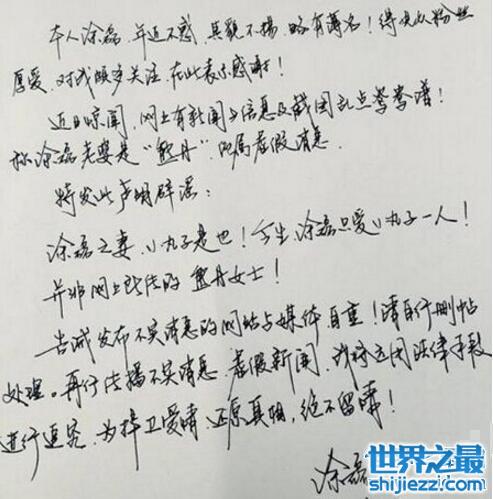 本人涂磊,年近不惑,其貌不扬,略有薄名!得众粉丝
厚爱,对我颇多关注,在此表示感谢!
近日惊闻,网上有新闻与信息及截图乱点鸳鸯谱!
称涂磊老婆是“熊丹”,此属虚假消息。
特发此声明辟谣:
涂磊之妻,小丸子是也!今生涂磊只爱小丸子一人!
并非网上所传的熊丹女士!
告诫发布不实消息的网站与媒体自重!请自行删帖
处理。再行传播不实消息,虚假新闻,我将运用法律手段
进行追究,为捍卫爱情,还原真相,绝不留情!
涂磊
世界之最
shijiezzi.com